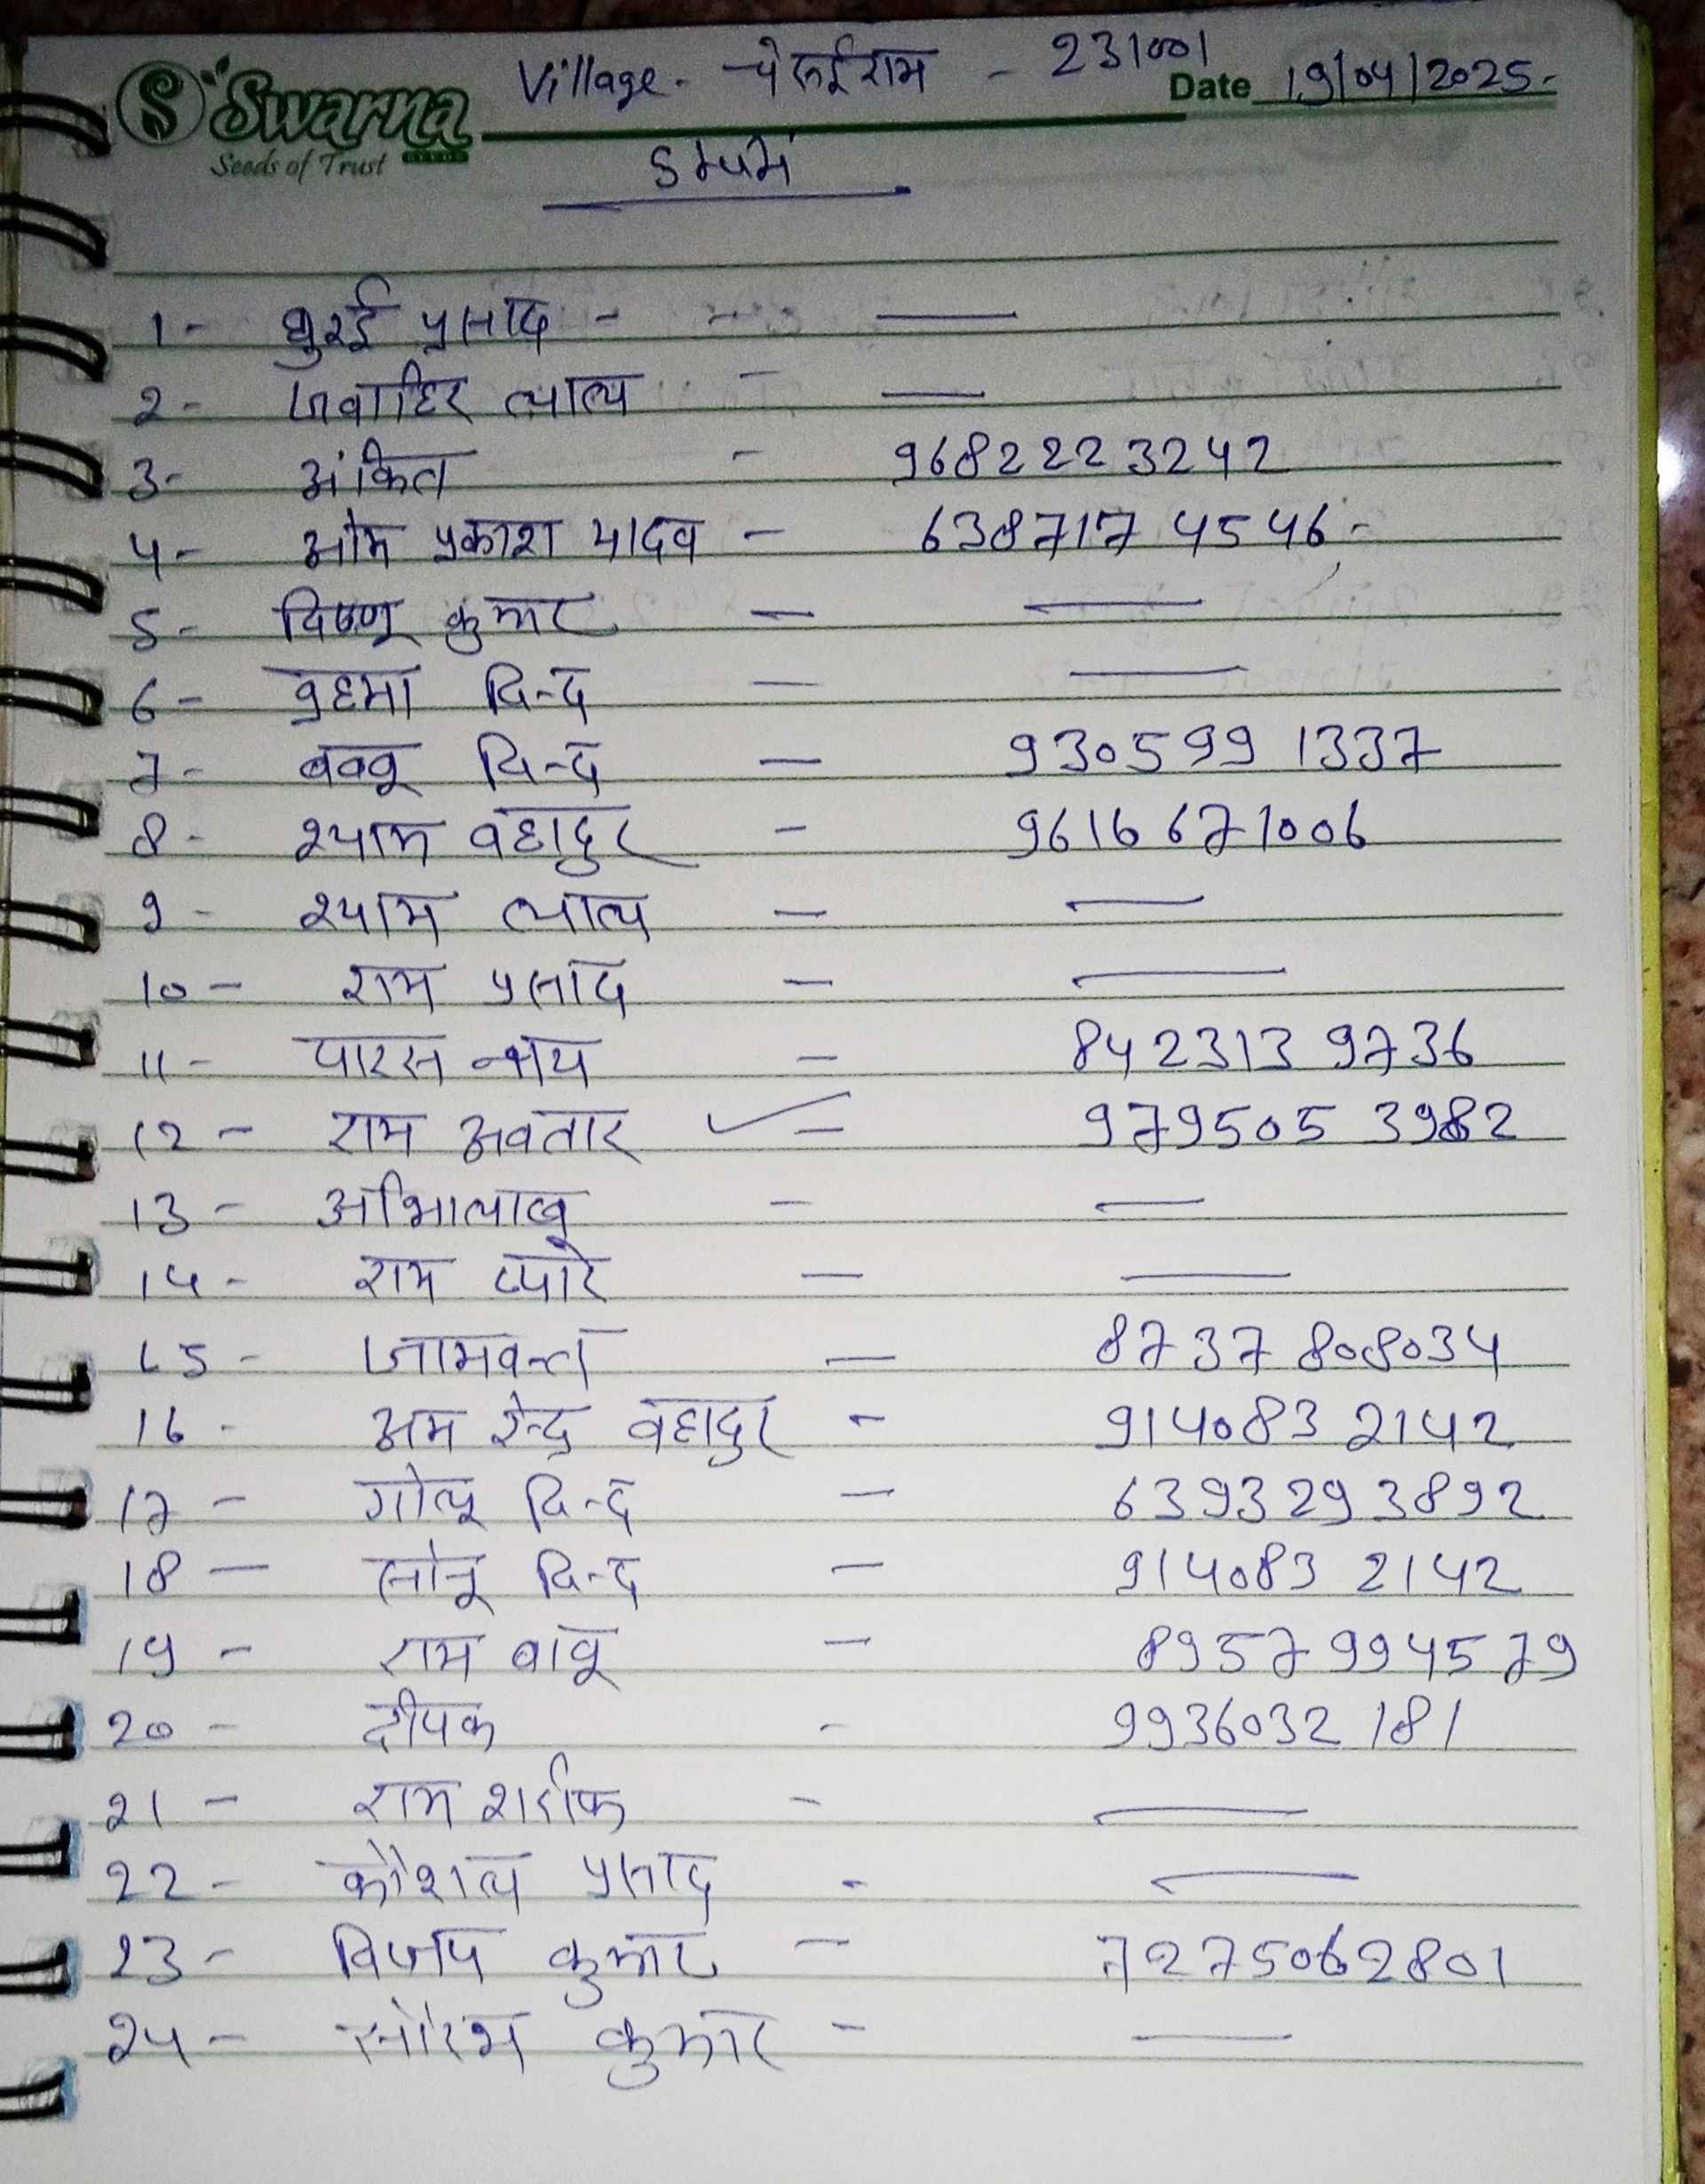 Swarna
Seeds of Trust
Village - चेरुईराम - 231001
Date 19/04/2025
1- घुरई प्रसाद - - —
2- जवाहिर लाल - —
3- अंकित - 9682223242
4- ओम प्रकाश यादव - 6387174546 -
5- विष्णु कुमार - —
6- ब्रहमा विन्द - —
7- बबबू विन्द - 9305991337
8- श्याम वहादुर - 9616671006
9- श्याम लाल - —
10- राम प्रसाद - —
11- पारस नाथ - 8423139736
12- राम अवतार - 9795053982
13- अभिलाख - —
14- राम प्यारे - —
15- जामवन्त - 8737808034
16- अम रेन्द्र वहादुर - 9140832142
17- गोलू विन्द - 6393293892
18- सोनू विन्द - 9140832142
19- राम बाबू - 8957994579
20- दीपक - 9936032181
21- राम शरीफ - —
22- कौशल प्रसाद - —
23- विजय कुमार - 7275062801
24- सौरभ कुमार - —